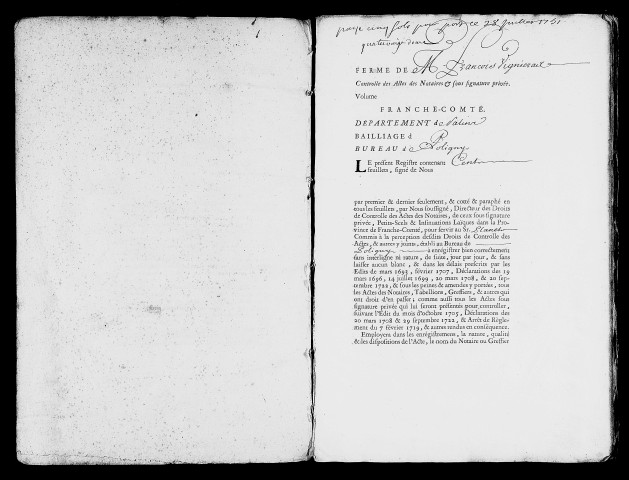 paye cinq sols pour port ce 28 juillet 1751
FERME DE M François
Controlle des Actes des Notaires & sous signature privée.
Volume
FRANCHE-COMTÉ.
DEPARTEMENT de Salins
BAILLIAGE d
BUREAU de Poligny
LE présent Registre contenant Cent
feuillets, signé de Nous
par premier & dernier seulement, & coté & paraphé en
tous les feuillets, par Nous soussigné, Directeur des Droits
de Controlle des Actes des Notaires, de ceux sous signature
privée, Petits-Scels & Insinuations Laïques dans la Pro-
vince de Franche-Comté, pour servir au Sr.
Commis à la perception desdits Droits de Controlle des
Actes, & autres y joints, établi au Bureau de
Poligny à enrégistrer bien correctement,
sans interligne ni rature, de suite, jour par jour, & sans
laisser aucun blanc, & dans les délais prescrits par les
Edits de mars 1693, février 1707, Déclarations des 19
mars 1696, 14 juillet 1699, 20 mars 1708, & 20 sep-
tembre 1722, & sous les peines & amendes y portées, tous
les Actes des Notaires, Tabellions, Greffiers, & autres qui
ont droit d'en passer; comme aussi tous les Actes sous
signature privée qui lui seront présentés pour controller,
suivant l'Edit du mois d'octobre 1705, Déclarations des
20 mars 1708 & 29 septembre 1722, & Arrêt de Régle-
ment du 7 février 1719, & autres rendus en conséquence.
Employera dans les enrégistremens, la nature, qualité
& les dispositions de l'Acte, le nom du Notaire ou Greffier